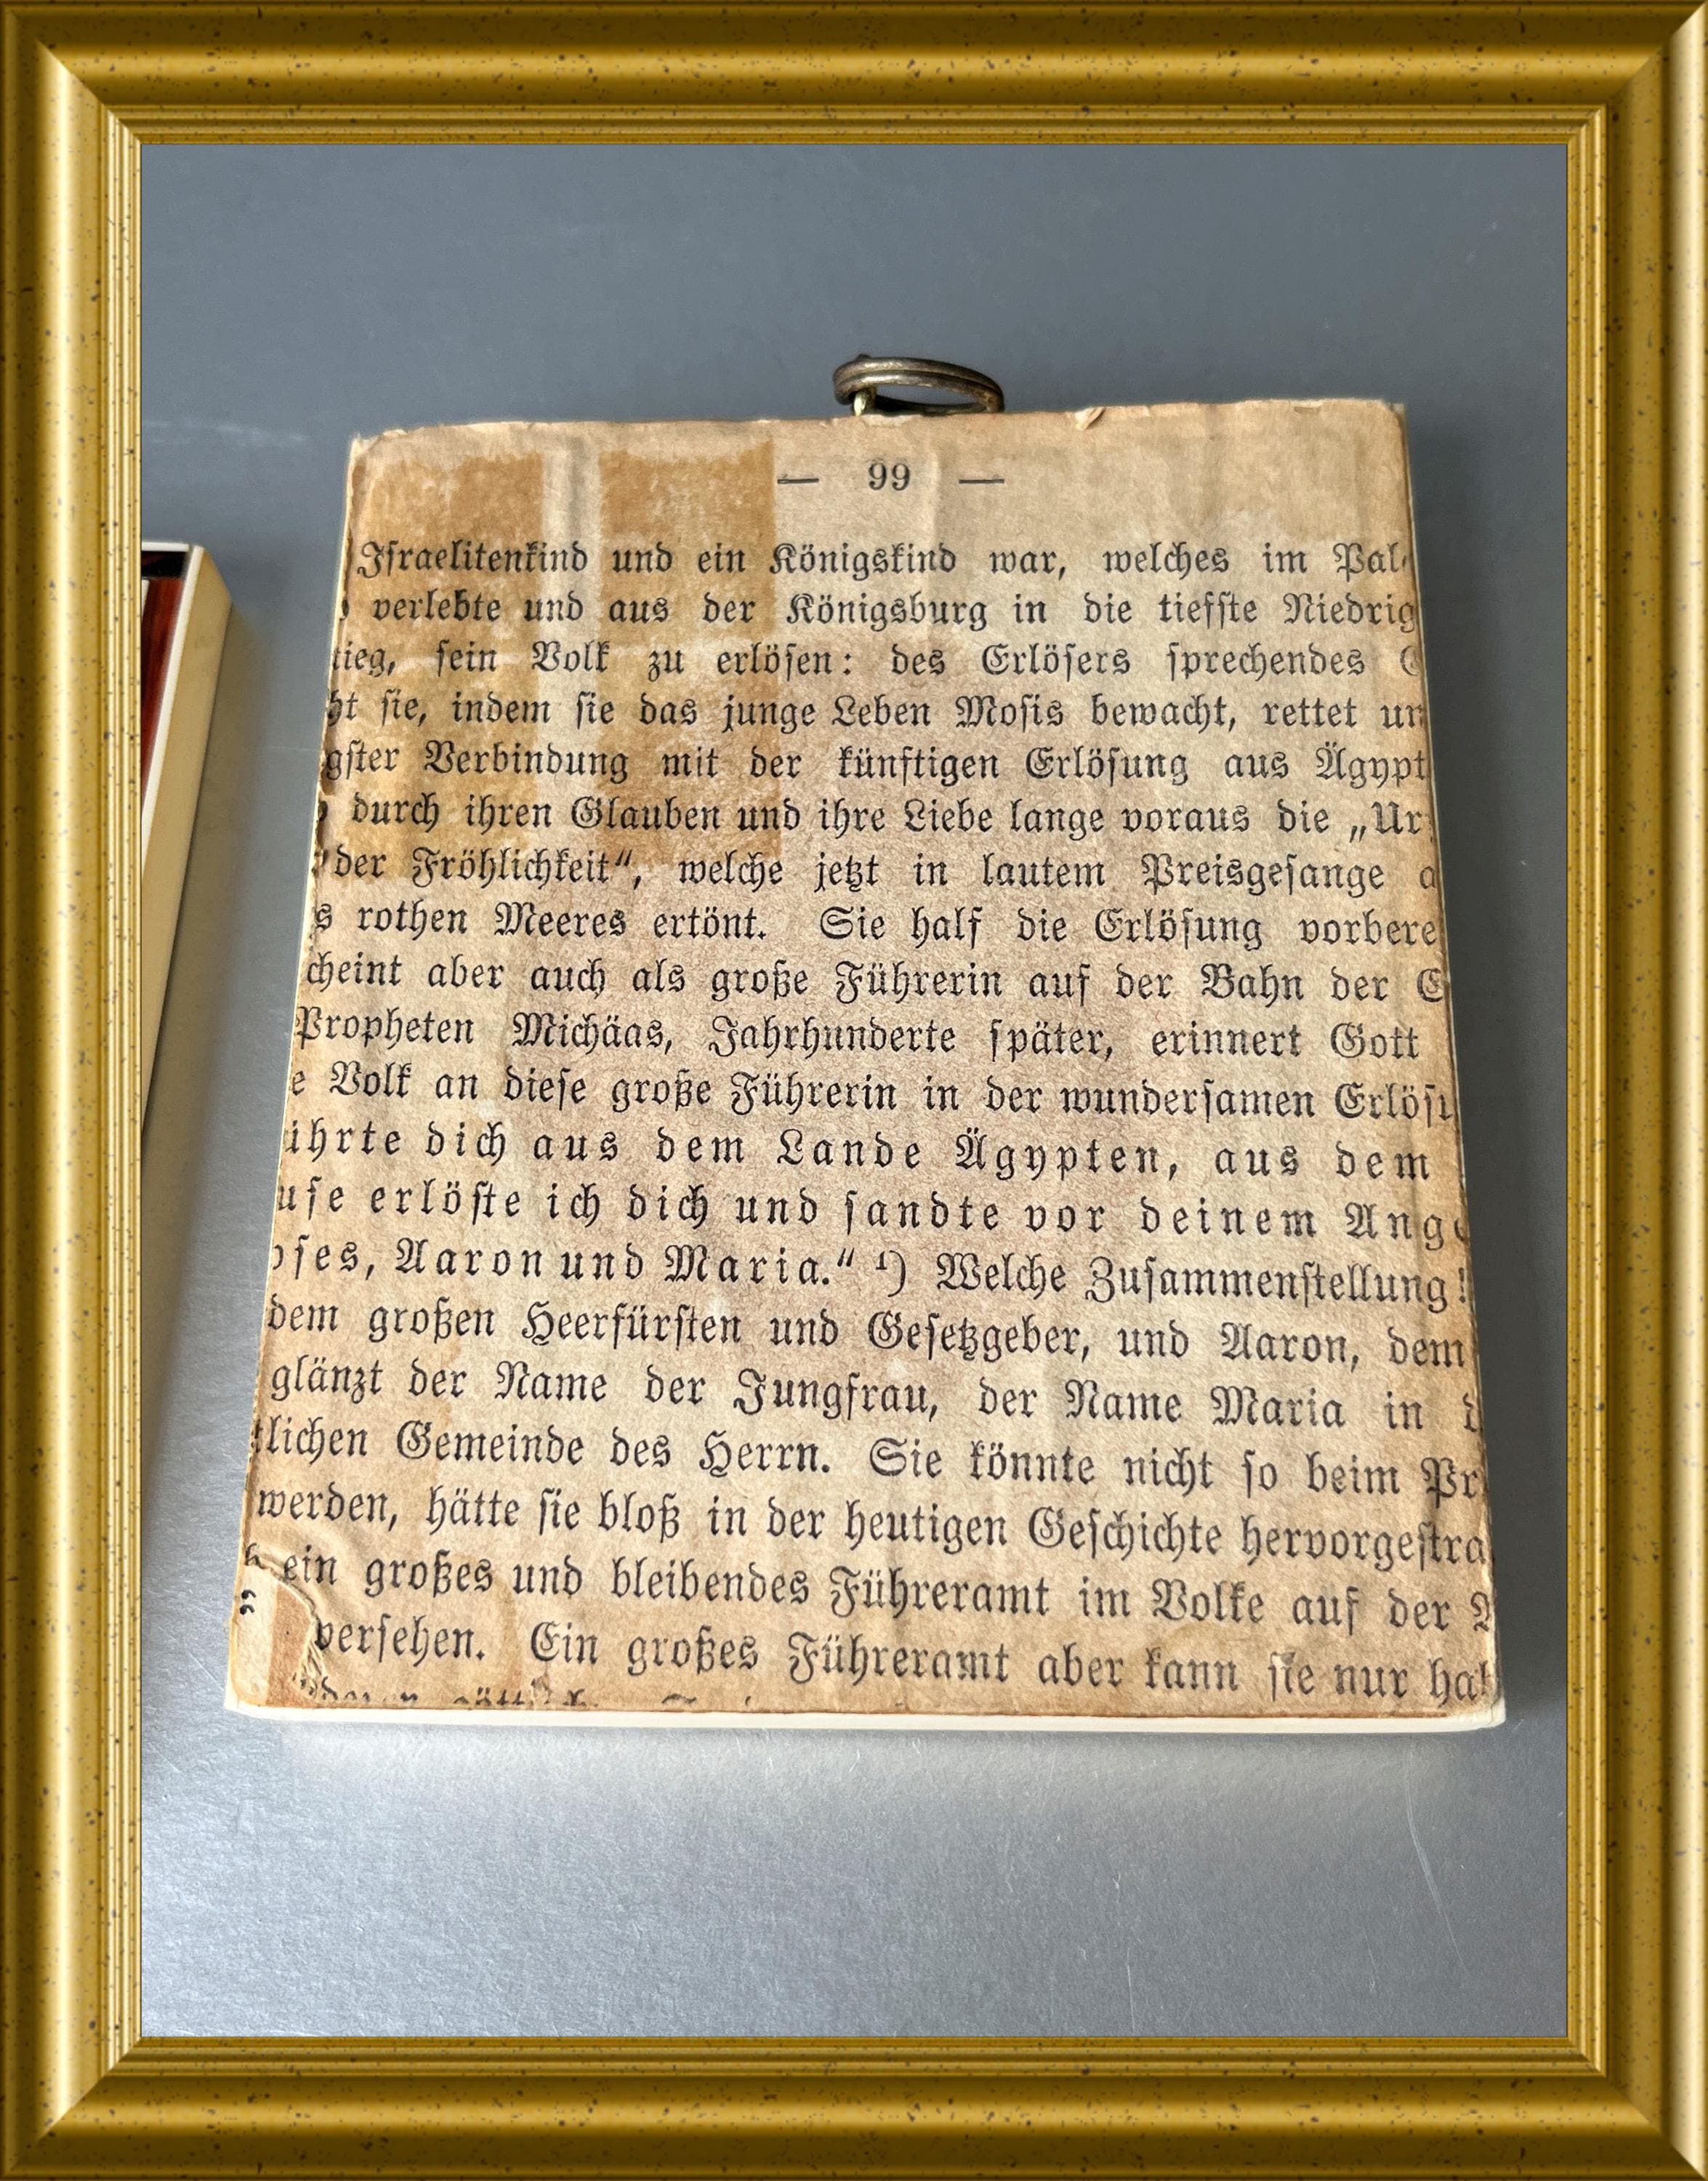 — 99 —
Iſraelitenkind und ein Königskind war, welches im Pal
verlebte und aus der Königsburg in die tiefſte Niedrig
tieg, ſein Volk zu erlöſen: des Erlöſers ſprechendes
ht ſie, indem ſie das junge Leben Moſis bewacht, rettet un
gſter Verbindung mit der künftigen Erlöſung aus Ägypt
durch ihren Glauben und ihre Liebe lange voraus die „Ur
der Fröhlichkeit“, welche jetzt in lautem Preisgeſange a
s rothen Meeres ertönt. Sie half die Erlöſung vorbere
cheint aber auch als große Führerin auf der Bahn der E
Propheten Michäas, Jahrhunderte ſpäter, erinnert Gott
e Volk an dieſe große Führerin in der wunderſamen Erlöſu
ührte dich aus dem Lande Ägypten, aus dem
uſe erlöſte ich dich und ſandte vor deinem Ange
oſes, Aaron und Maria.“ ¹) Welche Zuſammenſtellung!
dem großen Heerfürſten und Geſetzgeber, und Aaron, dem
glänzt der Name der Jungfrau, der Name Maria in d
tlichen Gemeinde des Herrn. Sie könnte nicht ſo beim Pr
werden, hätte ſie bloß in der heutigen Geſchichte hervorgeſtra
ein großes und bleibendes Führeramt im Volke auf der
verſehen. Ein großes Führeramt aber kann ſie nur hab